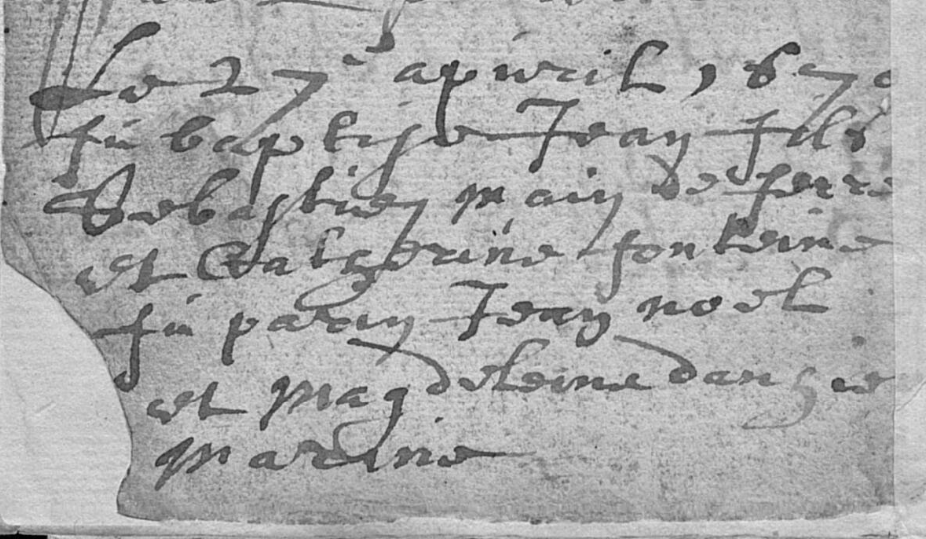 Le 27e apvril 1670
fu baptise Jean fils
Sebastien main de ferre
et Catherine fonteine
fu parain Jean noel
et Magdeleine dangie
Marine